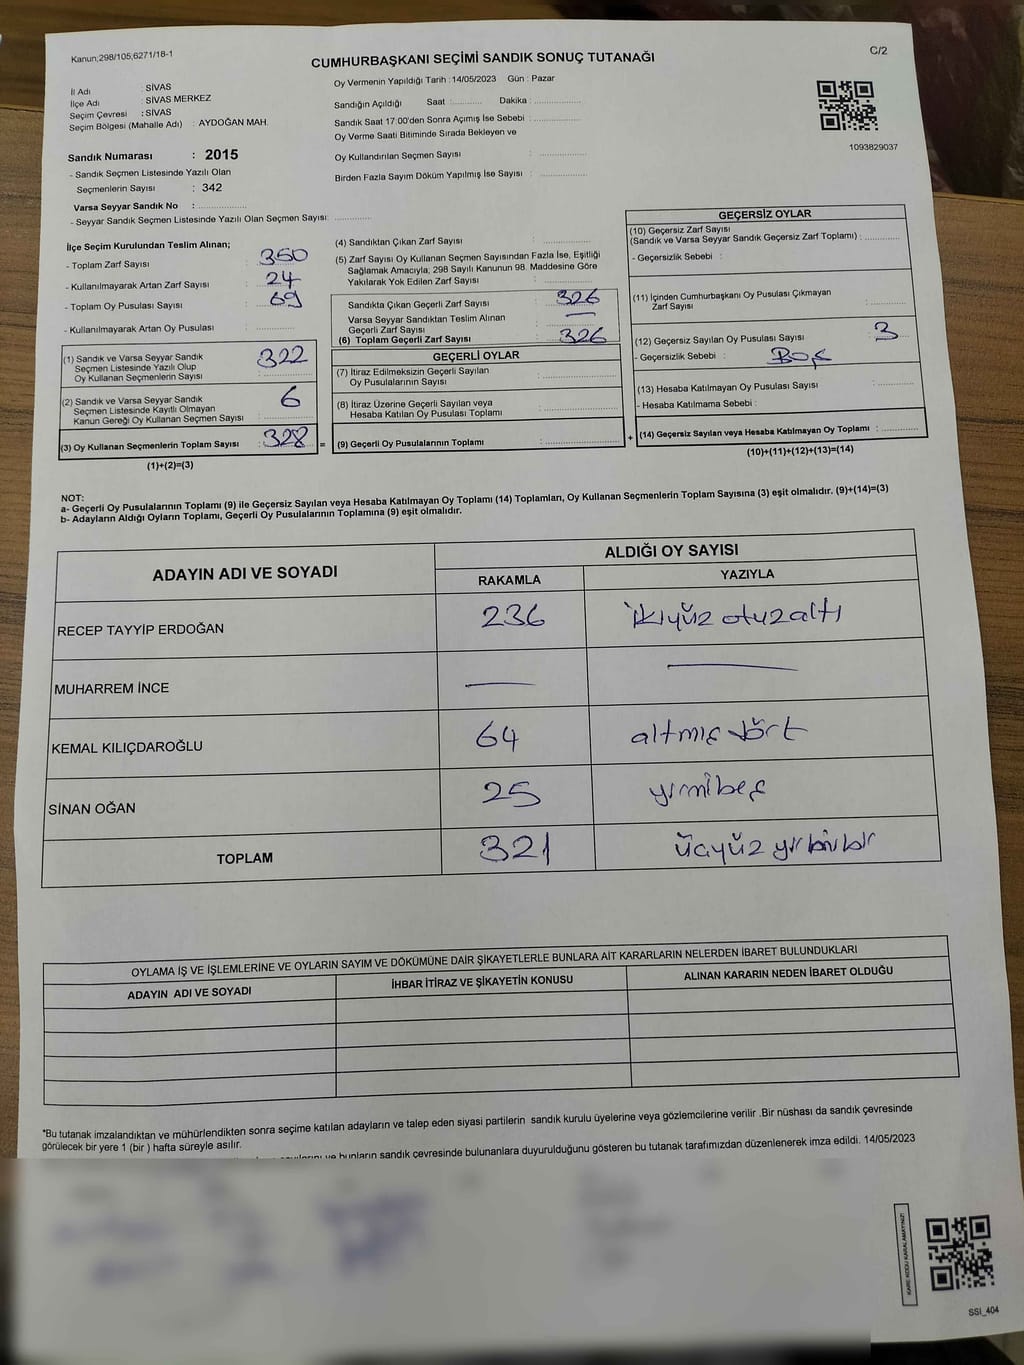 Kanun;298/105;6271/18-1
C/2
CUMHURBAŞKANI SEÇİMİ SANDIK SONUÇ TUTANAĞI
İl Adı : SİVAS
İlçe Adı : SİVAS MERKEZ
Seçim Çevresi : SİVAS
Seçim Bölgesi (Mahalle Adı) : AYDOĞAN MAH.
Sandık Numarası : 2015
- Sandık Seçmen Listesinde Yazılı Olan
Seçmenlerin Sayısı : 342
Varsa Seyyar Sandık No : ....................
- Seyyar Sandık Seçmen Listesinde Yazılı Olan Seçmen Sayısı: ...............
Oy Vermenin Yapıldığı Tarih : 14/05/2023 Gün : Pazar
Sandığın Açıldığı Saat :............ Dakika : ..................
Sandık Saat 17:00'den Sonra Açımış İse Sebebi : ..................
Oy Verme Saati Bitiminde Sırada Bekleyen ve
Oy Kullandırılan Seçmen Sayısı : ..................
Birden Fazla Sayım Döküm Yapılmış İse Sayısı : ..................
1093829037
İlçe Seçim Kurulundan Teslim Alınan;
- Toplam Zarf Sayısı : 350
- Kullanılmayarak Artan Zarf Sayısı : 24
- Toplam Oy Pusulası Sayısı : 69
- Kullanılmayarak Artan Oy Pusulası : ...............
(1) Sandık ve Varsa Seyyar Sandık
Seçmen Listesinde Yazılı Olup
Oy Kullanan Seçmenlerin Sayısı : 322
(2) Sandık ve Varsa Seyyar Sandık
Seçmen Listesinde Kayıtlı Olmayan
Kanun Gereği Oy Kullanan Seçmen Sayısı : 6
(3) Oy Kullanan Seçmenlerin Toplam Sayısı : 328 =
(1)+(2)=(3)
(4) Sandıktan Çıkan Zarf Sayısı : ...............
(5) Zarf Sayısı Oy Kullanan Seçmen Sayısından Fazla İse, Eşitliği
Sağlamak Amacıyla; 298 Sayılı Kanunun 98. Maddesine Göre
Yakılarak Yok Edilen Zarf Sayısı : ...............
Sandıkta Çıkan Geçerli Zarf Sayısı : 326
Varsa Seyyar Sandıktan Teslim Alınan
Geçerli Zarf Sayısı : —
(6) Toplam Geçerli Zarf Sayısı : 326
GEÇERLİ OYLAR
(7) İtiraz Edilmeksizin Geçerli Sayılan
Oy Pusulalarının Sayısı : ..................
(8) İtiraz Üzerine Geçerli Sayılan veya
Hesaba Katılan Oy Pusulası Toplamı : ..................
(9) Geçerli Oy Pusulalarının Toplamı : .................. +
GEÇERSİZ OYLAR
(10) Geçersiz Zarf Sayısı
(Sandık ve Varsa Seyyar Sandık Geçersiz Zarf Toplamı) : ............
- Geçersizlik Sebebi :
(11) İçinden Cumhurbaşkanı Oy Pusulası Çıkmayan
Zarf Sayısı : ............
(12) Geçersiz Sayılan Oy Pusulası Sayısı : 3
- Geçersizlik Sebebi : Boş
(13) Hesaba Katılmayan Oy Pusulası Sayısı : ............
- Hesaba Katılmama Sebebi :
(14) Geçersiz Sayılan veya Hesaba Katılmayan Oy Toplamı : ............
(10)+(11)+(12)+(13)=(14)
NOT:
a- Geçerli Oy Pusulalarının Toplamı (9) ile Geçersiz Sayılan veya Hesaba Katılmayan Oy Toplamı (14) Toplamları, Oy Kullanan Seçmenlerin Toplam Sayısına (3) eşit olmalıdır. (9)+(14)=(3)
b- Adayların Aldığı Oyların Toplamı, Geçerli Oy Pusulalarının Toplamına (9) eşit olmalıdır.
ADAYIN ADI VE SOYADI ALDIĞI OY SAYISI
RAKAMLA YAZIYLA
RECEP TAYYİP ERDOĞAN 236 ikiyüz otuzaltı
MUHARREM İNCE — —
KEMAL KILIÇDAROĞLU 64 altmış dört
SİNAN OĞAN 25 yirmibeş
TOPLAM 321 üçyüz
OYLAMA İŞ VE İŞLEMLERİNE VE OYLARIN SAYIM VE DÖKÜMÜNE DAİR ŞİKAYETLERLE BUNLARA AİT KARARLARIN NELERDEN İBARET BULUNDUKLARI
ADAYIN ADI VE SOYADI İHBAR İTİRAZ VE ŞİKAYETİN KONUSU ALINAN KARARIN NEDEN İBARET OLDUĞU
*Bu tutanak imzalandıktan ve mühürlendikten sonra seçime katılan adayların ve talep eden siyasi partilerin sandık kurulu üyelerine veya gözlemcilerine verilir .Bir nüshası da sandık çevresinde
görülecek bir yere 1 (bir ) hafta süreyle asılır.
ve bunların sandık çevresinde bulunanlara duyurulduğunu gösteren bu tutanak tarafımızdan düzenlenerek imza edildi. 14/05/2023
KARE KODU KARALAMAYINIZ!
SSI_404